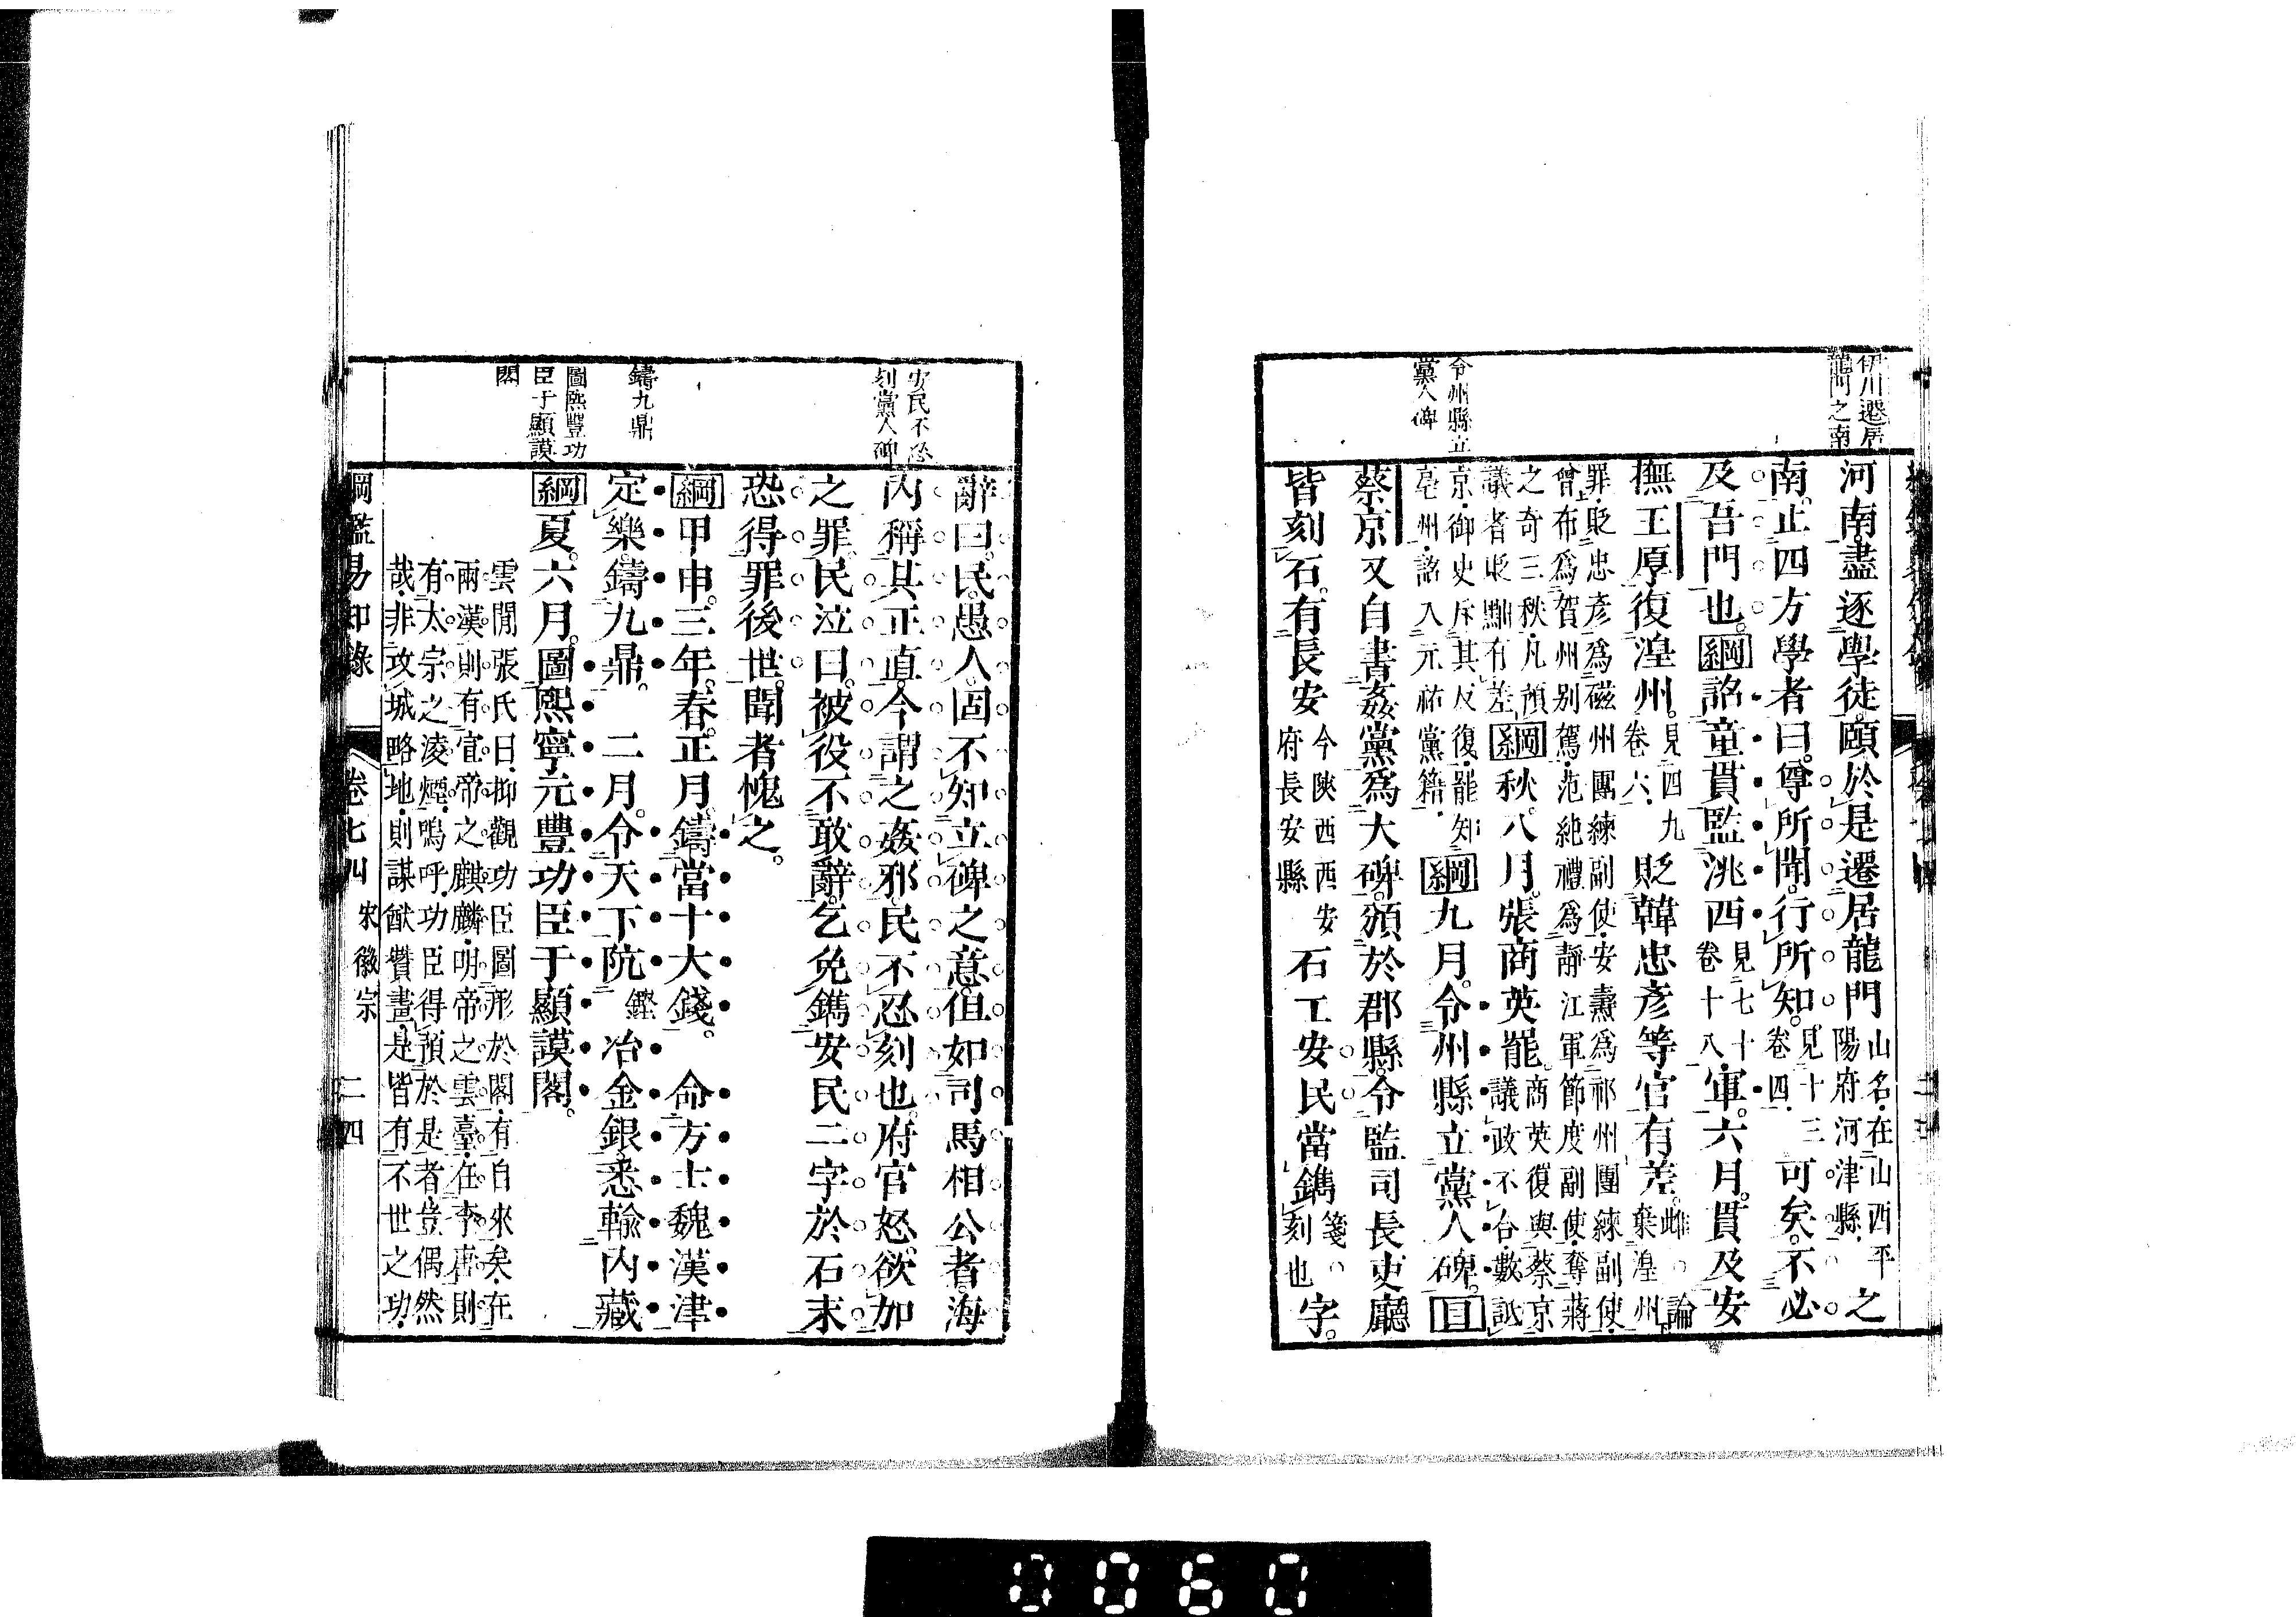 伊川遷居
龍門之南
河南盡逐學徒頤於是遷居龍門山名在山西平陽府河津縣之
南止四方學者曰尊所聞行所知見十三卷四可矣不必
及吾門也綱詔童貫監洮西見七十卷十八軍六月貫及安
撫王厚復湟州見四九卷六貶韓忠彥等官有差論棄湟州
罪貶忠彥爲磁州團練副使安燾爲祁州團練副使
曾布爲賀州別駕范純禮爲靜江軍節度副使奪蔣
之奇三秩凡預議者貶黜有差綱秋八月張商英罷商英復與蔡京議政不合數詆
京御史斥其反復罷知亳州詔入元祐黨籍綱九月令州縣立黨人碑目
令州縣立
黨人碑
蔡京又自書姦黨爲大碑頒於郡縣令監司長吏廳
皆刻石有長安今陝西西安府長安縣石工安民當鐫箋刻也字
安民不忍
刻黨人碑
辭曰民愚人固不知立碑之意但如司馬相公者海
內稱其正直今謂之姦邪民不忍刻也府官怒欲加
之罪民泣曰被役不敢辭乞免鐫安民二字於石末
恐得罪後世聞者愧之
綱甲申三年春正月鑄當十大錢 命方士魏漢津
鑄九鼎
定樂鑄九鼎 二月令天下阬鏗冶金銀悉輸內藏
圖熙豐功
臣于顯謨
閣
綱夏六月圖熙寧元豐功臣于顯謨閣
雲閒張氏曰抑觀功臣圖形於閣有自來矣在
兩漢則有宣帝之麒麟明帝之雲臺在李唐則
有太宗之凌煙嗚呼功臣得預於是者豈偶然
哉非攻城略地則謀猷贊畫是皆有不世之功
綱鑑易知錄 卷七四 宋徽宗 二四
0060